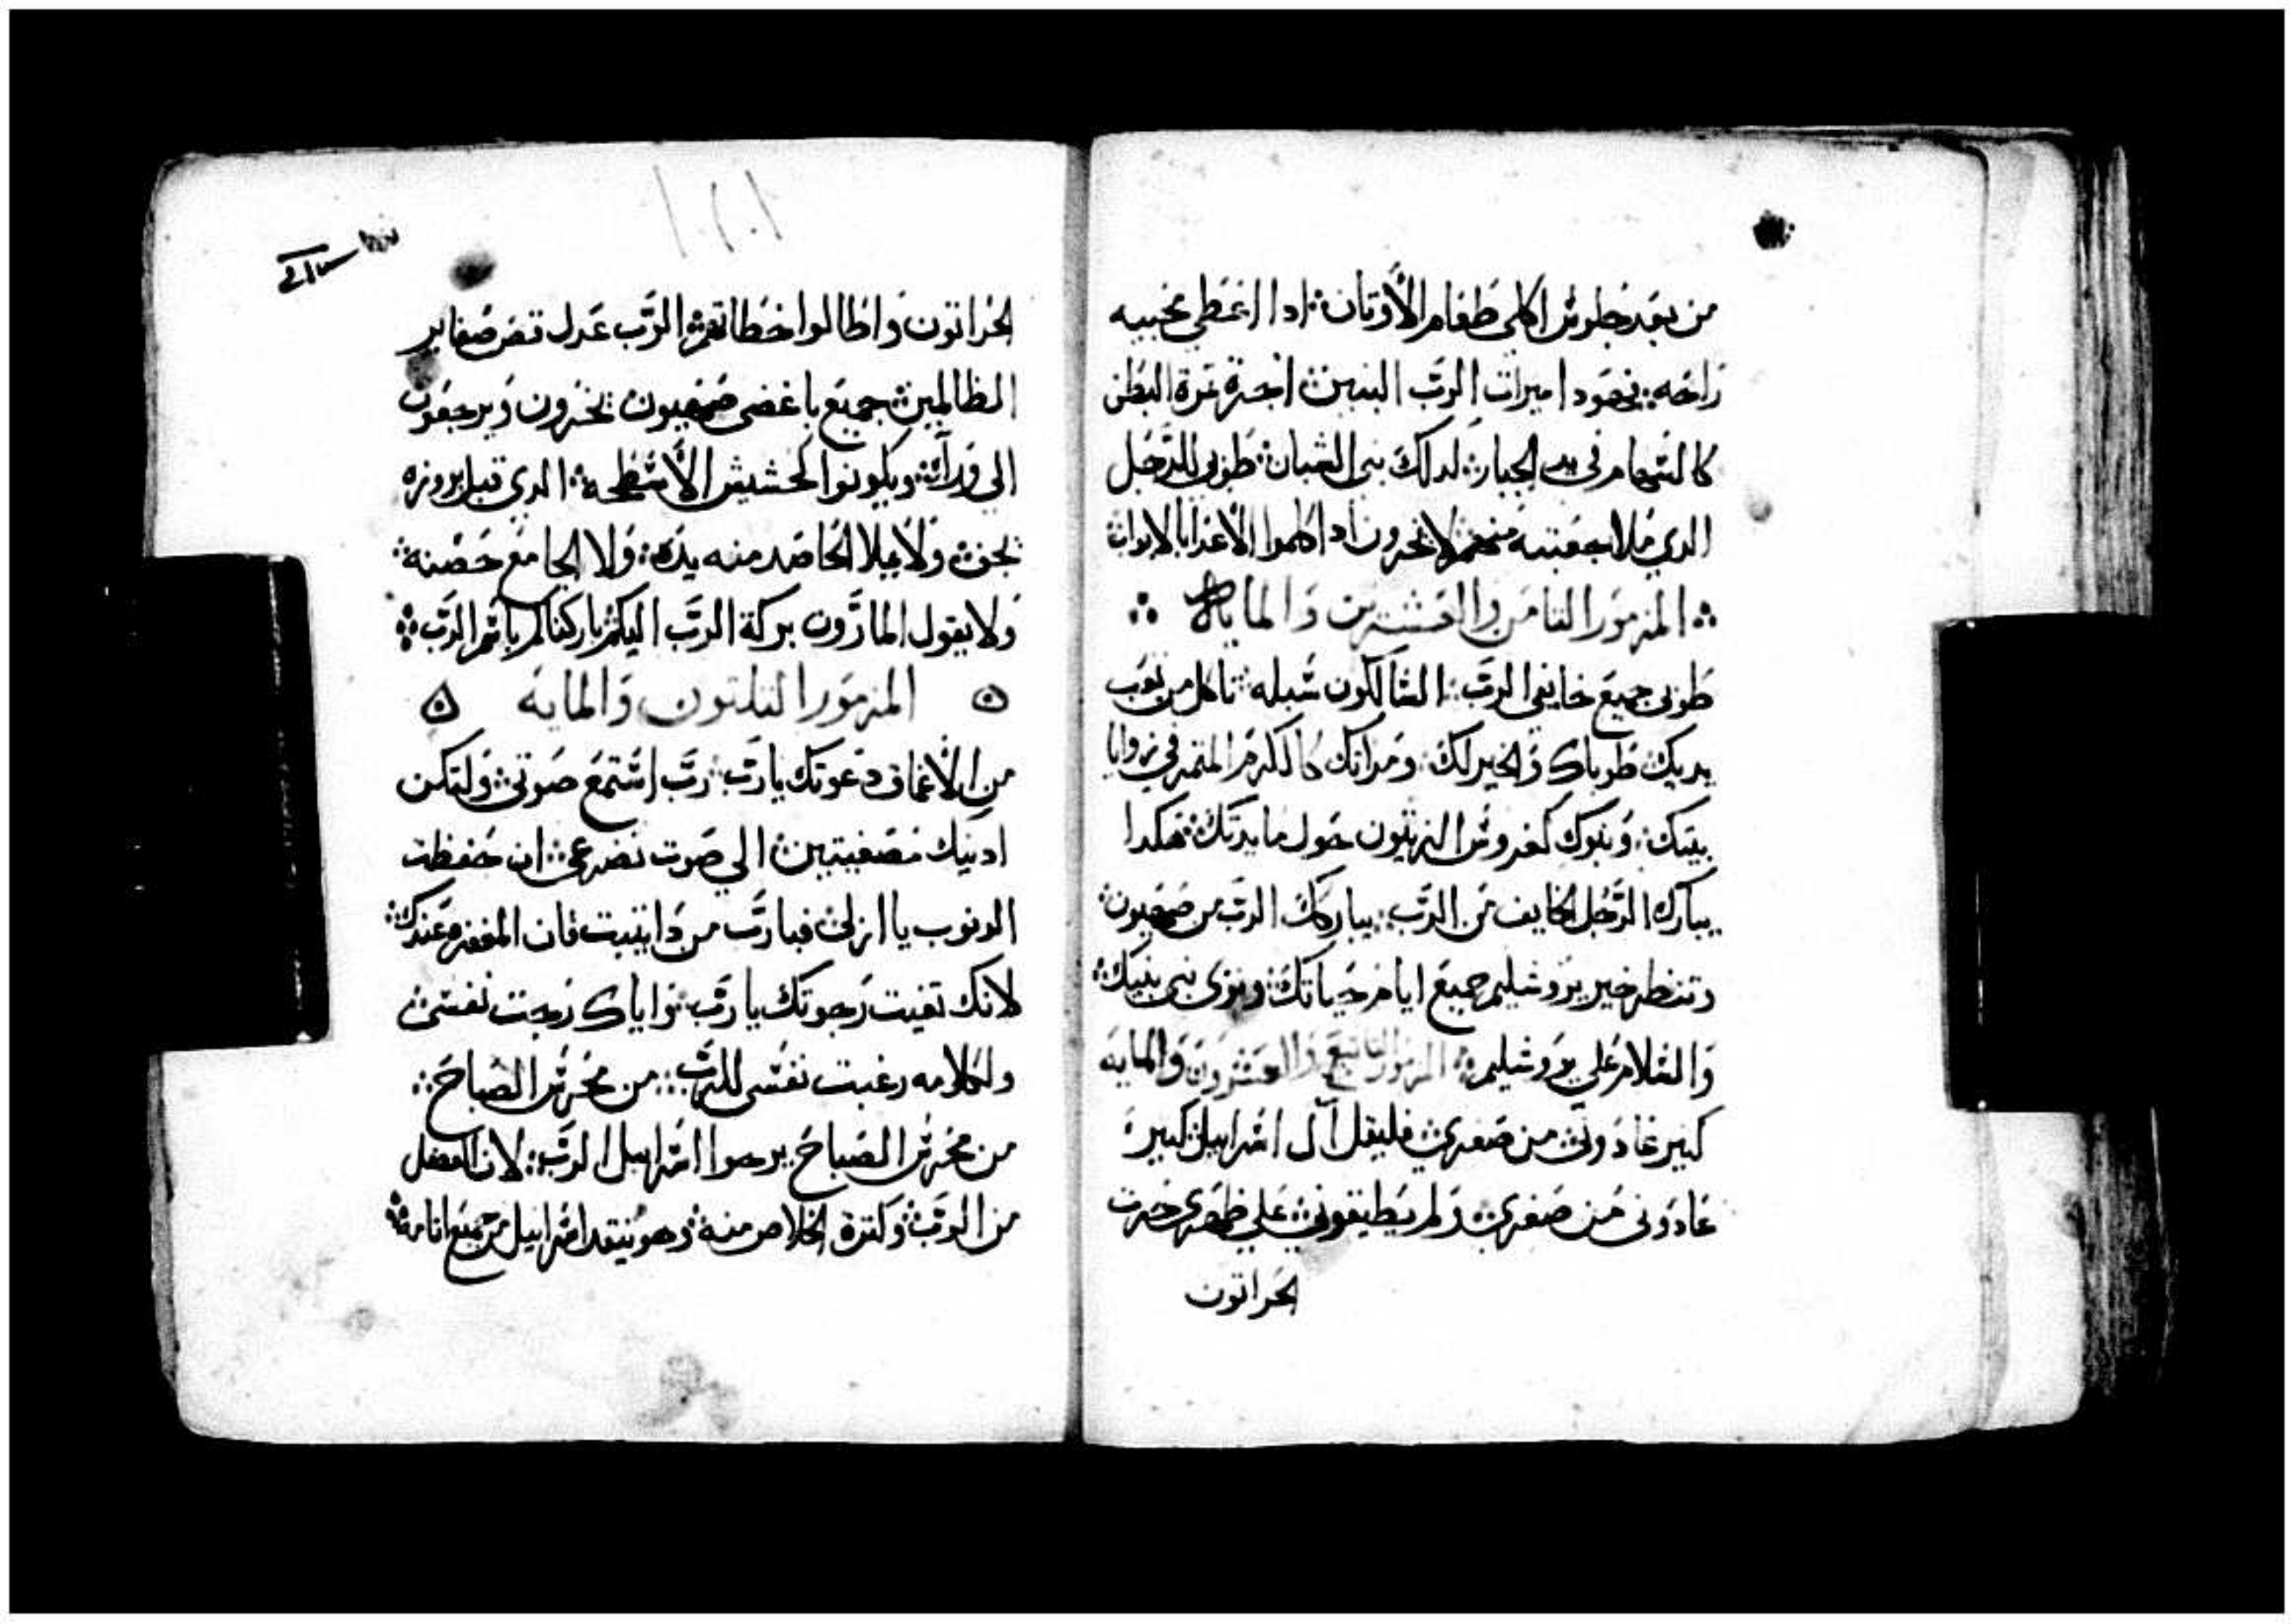 من بعد جلوس اكلي طعام الأوتان ⁘ ادا اعطي محبيه
راحه ⁘ بحصودا ميرات الرب البنين ⁘ اجرة تمرة البطن
كالسهام في يد الجبار ⁘ لدلك بني الشبان ⁘ طوبى للرجل
الدي ملا جعبته منهم لا يخزون ادا كلموا الأعدا بالابواب
⁘ المزمور التامن والعشرين والمايه ⁘
طوبى جميع خايفي الرب ⁘ السالكون سبله ⁘ تاكل من تعب
يديك طوباك والخير لك ⁘ ومراتك كالكرم المتمر في زوايا
بيتك ⁘ وبنوك كغروس الزيتون حول مايدتك ⁘ هكدا
يبارك الرجل الخايف من الرب ⁘ يباركك الرب من صهيون ⁘
وتنظر خير يروشليم جميع ايام حياتك ⁘ وترى بني بنيك ⁘
والسلام علي يروشليم ⁘ المزمور التاسع والعشرون والمايه
كتير عادوني من صغري ⁘ فليقل آل اسراييل ⁘ كتير
عادوني من صغري ⁘ ولم يطيقوني ⁘ علي ظهري حرت
الحراتون
١٠٢٠١
الحراتون واطالوا خطاتهم ⁘ الرب عدل قص ضفاير
الظالمين ⁘ جميع باغضي صهيون يخزون ويرجعون
الي ورآء ⁘ ويكونوا كحشيش الأسطحه ⁘ الدي قبل بروزه
يجف ⁘ ولا يملا الحاصد منه يده ⁘ ولا الجامع حضنه ⁘
ولا يقول المارون بركة الرب اليكم ⁘ باركناكم باسم الرب ⁘
المزمور التلتون والمايه
من الأعماق دعوتك يا رب ⁘ رب استمع صوتي ⁘ ولتكن
ادنيك مصغيتين ⁘ الي صوت تضرعي ⁘ ان حفظت
الدنوب يا ازلي ⁘ فيا رب من دا يتبت فان المغفره عندك ⁘
لانك تقيت رجوتك يا رب ⁘ واياك رجت نفسي ⁘
ولكلامه رغبت نفسي للرب ⁘ من محرس الصباح ⁘
من محرس الصباح يرجوا اسراييل الرب ⁘ لان الفضل
من الرب ⁘ وكترة الخلاص منه ⁘ وهو ينقد اسراييل من جميع اتامه ⁘